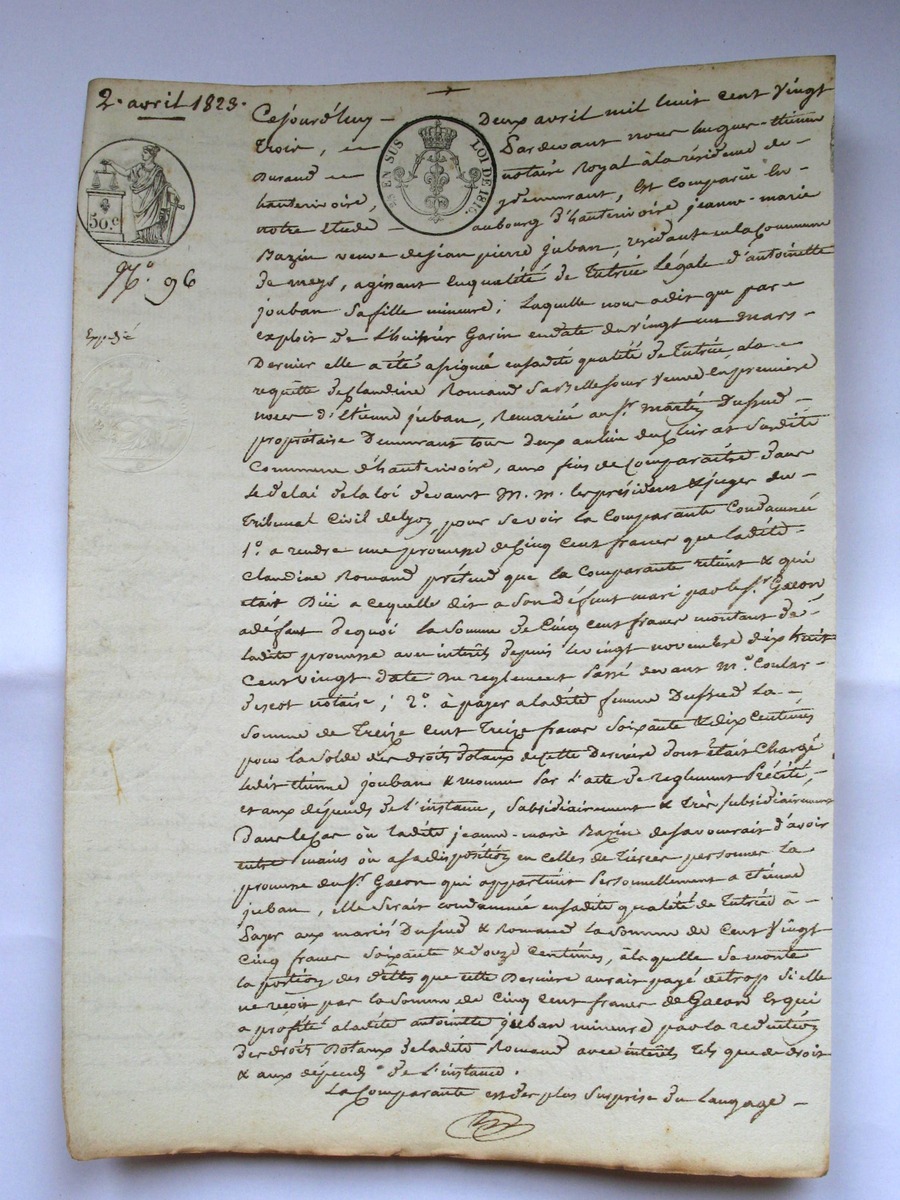 2. avril 1823.
Cejourd'huy - Deux avril mil huit cent vingt
trois, en Pardevant nous hugues-Etienne
Durand notaire Royal à la résidence de -
hauterivoire, y demeurant, Est Comparüe En
notre étude - aubourg d'hauterivoire jeanne-marie
EN SUS LOI DE 1816.
50.c
N.o 96
Expédié
Bazin veuve de jean pierre juban, residante en la Commune
de meys, agissant en qualité de Tutrice Légale d'antoinette
jouban sa fille mineure; Laquelle nous a dit que par -
exploit de L'huissier Garin en date du vingt un mars -
Dernier elle a été assignée en sadite qualité de Tutrice, a la -
requête de Claudine Romand sa Belle Soeur veuve en premiere
noces d'Etienne juban, Remariée au Sr. martin Dussud -
propriétaire Demeurant tous deux au lieu du sudite
Commune d'hauterivoire, aux fins de Comparaître dans
Le delai de la loi devant M.M. les président & juges du -
Tribunal Civil de Lyon, pour se voir la Comparante Condamnée
1.o a rendre une promesse de Cinq cent francs que ladite -
Claudine Romand prétend que la Comparante retient & qui
était Düe a cequelle dit a son Défunt mari par le Sr. Gacon
a défaut de quoi la somme de Cinq cent francs montant de
ladite promesse avec intérêts depuis le vingt novembre dix huit
Cent vingt date du reglement Passé devant M.e Coular-
descot notaire; 2.o à payer a ladite femme Dussud La -
Somme de Treize cent Treize francs soixante & dix Centimes
pour la Solde des droits dotaux de cette Derniere dont était Chargé
Ledit Etienne jouban & reconnu Par l'acte de reglement Précité, -
et aux dépends de l'instance, Subsidiairement & Très subsidiairement
Dans le Cas où ladite jeanne-marie Bazin desavourait d'avoir
entre mains où a sa disposition en Celles de Tierces personnes La
promesse du Sr. Gacon qui appartint Personnellement a Etienne
juban, elle serait condamnée en sadite qualité de Tutrice à -
Payer aux mariés Dussud & Romand la Somme de Cent Vingt
Cinq francs soixante & douze Centimes, à laquelle se monte
la portion des dettes que cette Derniere aurait payé de trop Si elle
ne reçoit pas la Somme de Cinq Cent francs de Gacon Et qui
a profité a ladite antoinette juban mineure par la
des droits Dotaux de ladite Romand avec intérêts tels que de droit
& aux dépends de L'instance.
La Comparante est des plus Surprise du Langage -